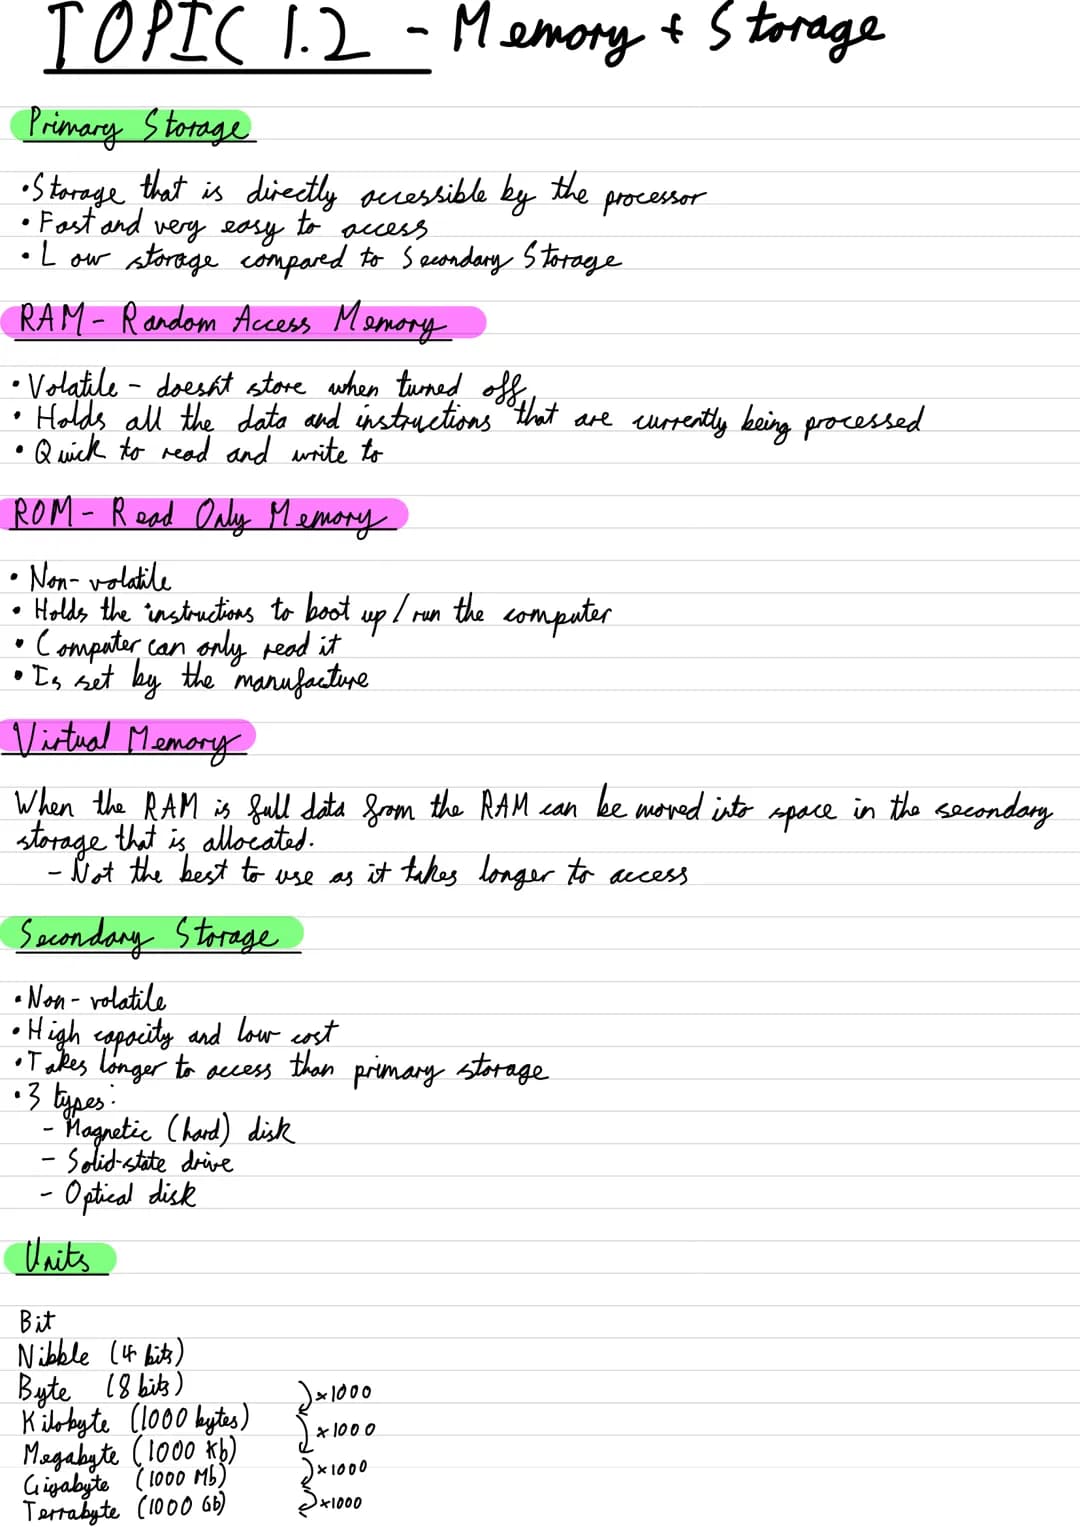 TOPIC 1.2 - Memory + Storage
Primary Storage
• Storage that is directly accessible by the processor
• Fast and very easy to access
• Low storage compared to Secondary Storage
RAM - Random Access Memory
• Volatile - doesn't store when turned off
• Holds all the data and instructions that are currently being processed
• Quick to read and write to
ROM - Read Only Memory
• Non-volatile
• Holds the instructions to boot up / run the computer
• Computer can only read it
• Is set by the manufacture
Virtual Memory
When the RAM is full data from the RAM can be moved into space in the secondary
storage that is allocated.
- Not the best to use as it takes longer to access
Secondary Storage
• Non-volatile
• High capacity and low cost
• Takes longer to access than primary storage
• 3 types:
- Magnetic (hard) disk
- Solid-state drive
- Optical disk
Units
Bit
Nibble (4 bits)
Byte (8 bits)
×1000
Kilobyte (1000 bytes)
×1000
Megabyte (1000 Kb)
×1000
Gigabyte (1000 Mb)
×1000
Terrabyte (1000 Gb)